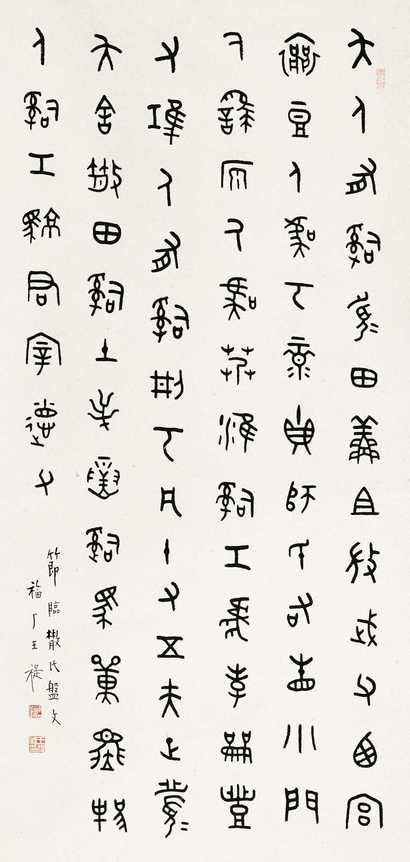 夨人有𤔲履田鮮且𢼸武父西宮
襄豆人虞丂彔貞師氏右眚小門
人繇原人虞艿淮𤔲工虎孝龠豐
父人有𤔲刑丂凡十又五夫正履
夨舍散田𤔲土屰寅𤔲馬單邦
人𤔲工君宰德父
節臨散氏盤文
福厂王禔